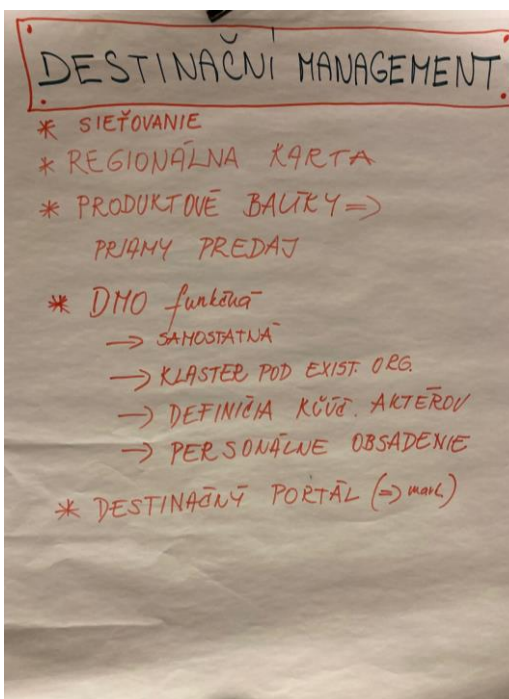 DESTINAČNÍ MANAGEMENT
* SIEŤOVANIE
* REGIONÁLNA KARTA
* PRODUKTOVÉ BALÍKY =>
PRIAMY PREDAJ
* DMO funkčná
→ SAMOSTATNÁ
→ KLASTER POD EXIST. ORG.
→ DEFINÍCIA KĽÚČ. AKTÉROV
→ PERSONÁLNE OBSADENIE
* DESTINAČNÝ PORTÁL (=> mark.)